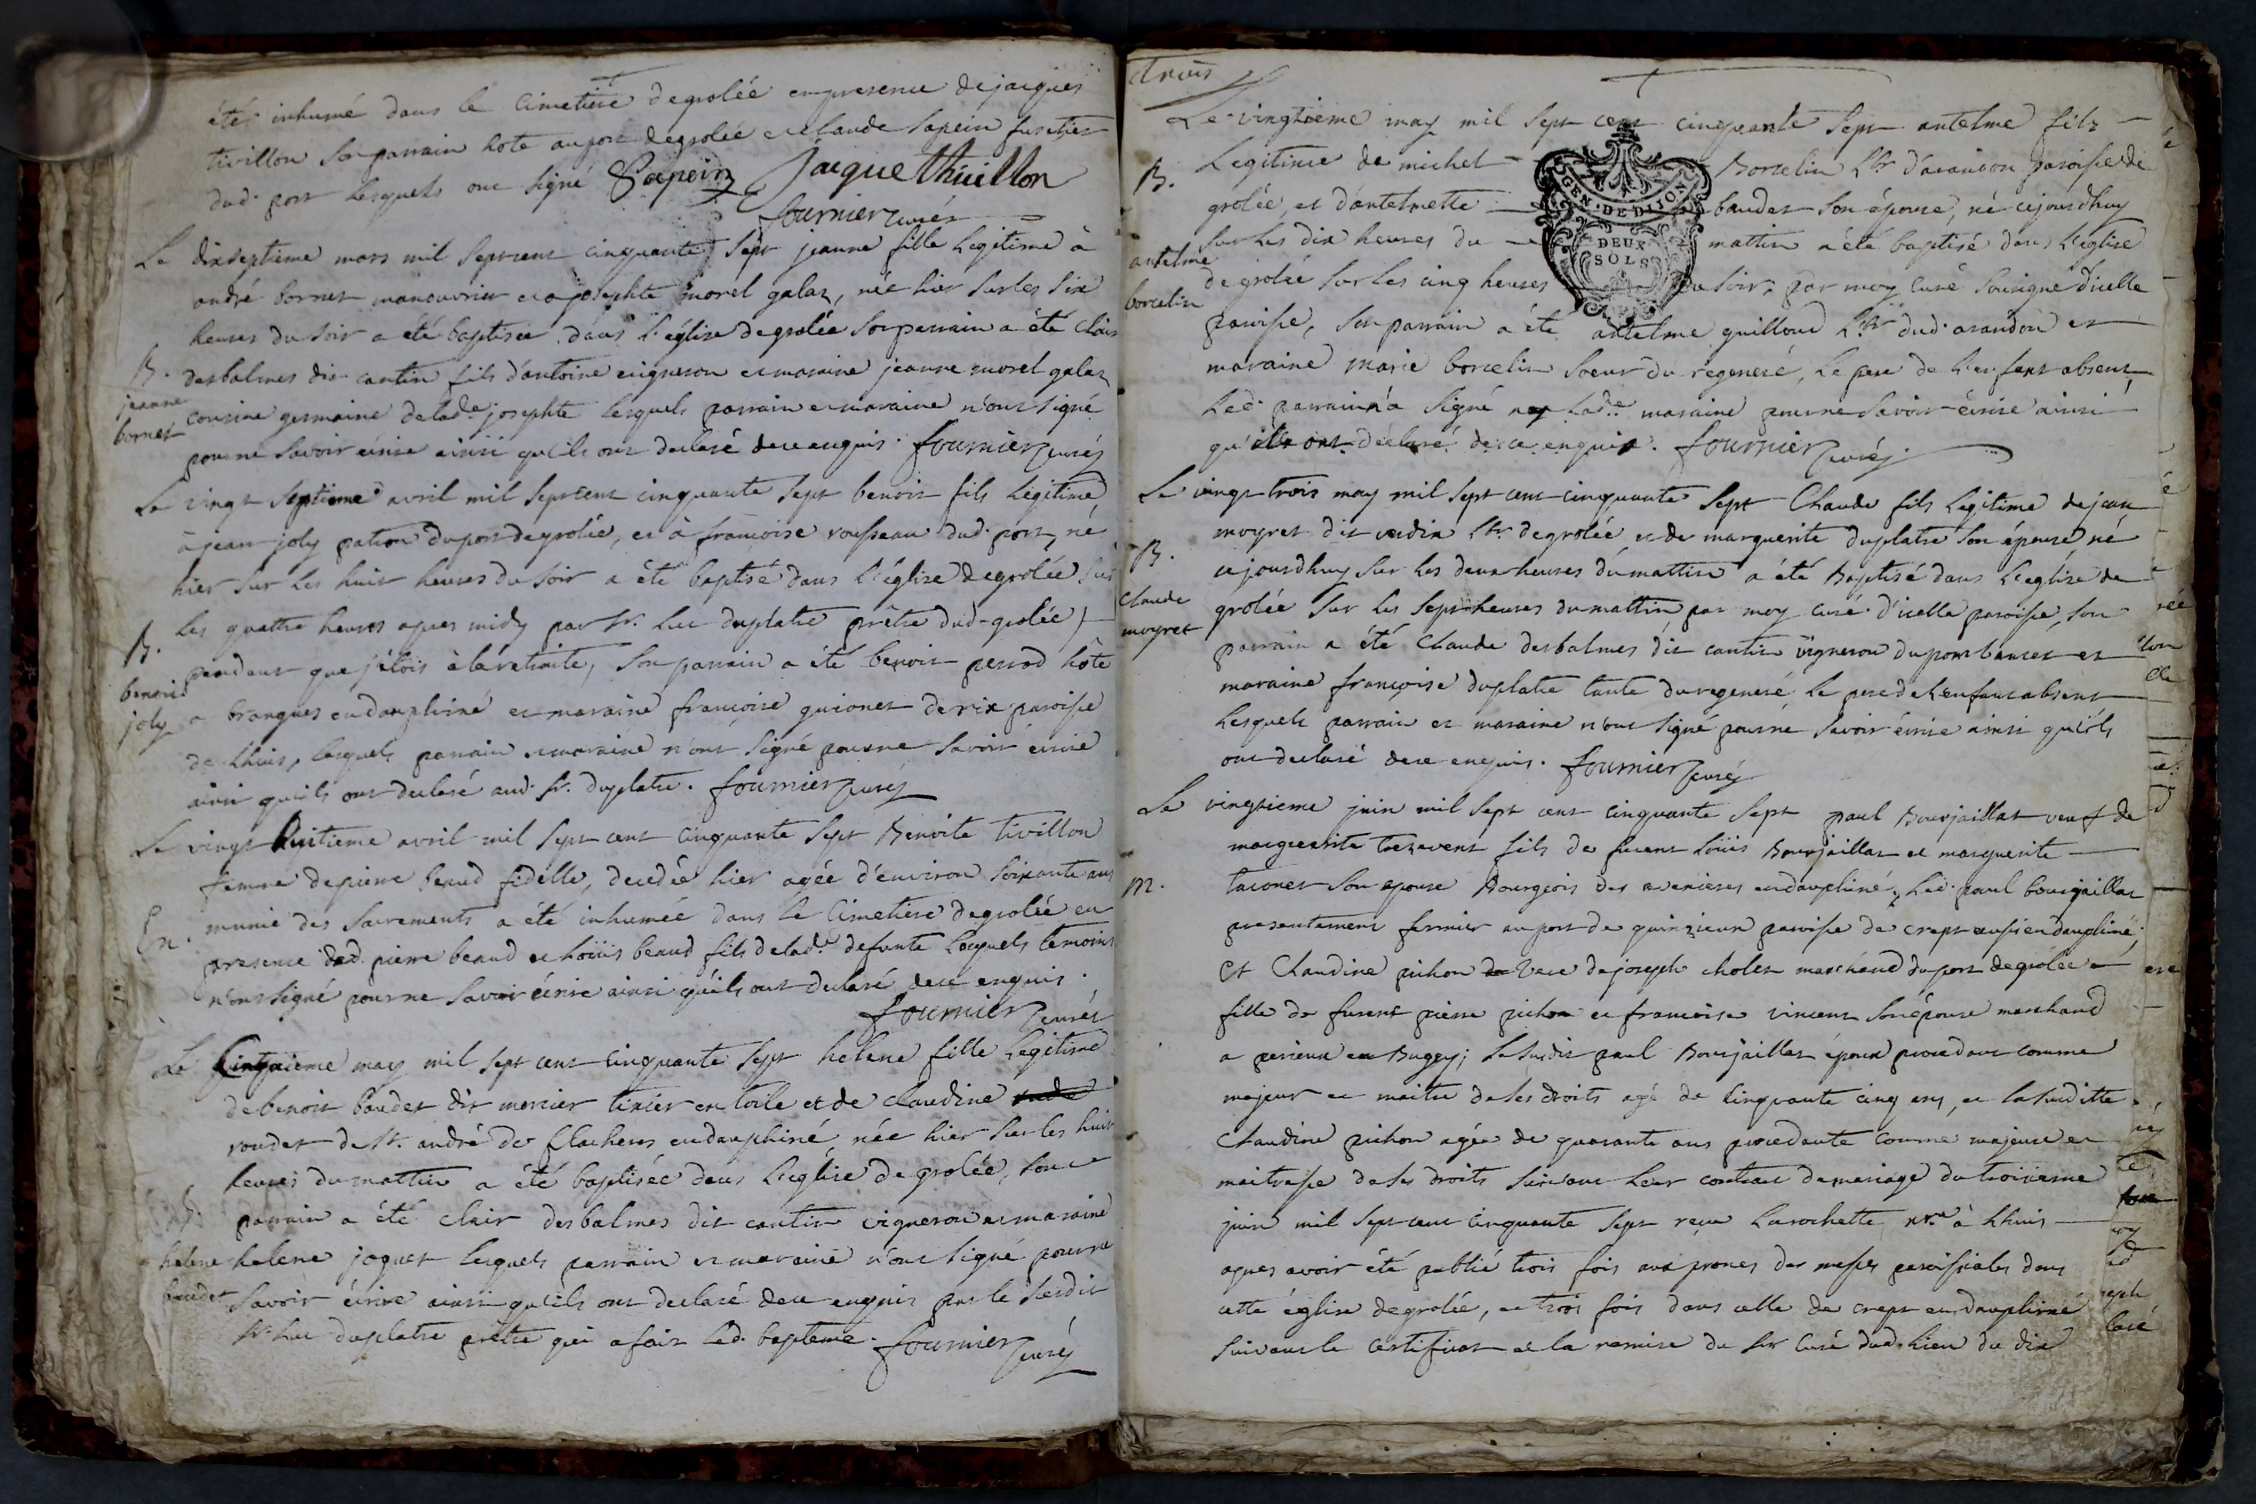 été inhumé dans le cimetière degrolée en presence de jacques
tivillon son parrain hote au port degrolée et claude sapein fustier
dud. port lesquels ont signé Sapein Jacque thuillon
fournier curé
Le dixseptieme mars mil septcent cinquante sept jeanne fille legitime à
andré bornet manouvrier et a josephte morel galaz, née hier sur les six
heures du soir a été baptisée dans l'église degrolée son parrain a été clair
desbalmes dit cantin fils d'antoine vigneron et maraine jeanne morel galaz
B.
jeanne
bornet
cousine germaine de lad.e josephte lesquels parrain et maraine n'ont signé
pour ne savoir écrire ainsi qu'ils ont declaré de ce enquis. fournier curé
Le vingt septieme avril mil sept cent cinquante sept benoit fils légitime
à jean joly patron du port degrolée, et à francoise rousseau dud. port, né
hier sur les huit heures du soir a été baptisé dans l'église degrolée sur
les quattre heures apres midy par Sr. luc duplatre prêtre dud. grolée
B.
benoit
joly
pendant que j'étois à la retraite, son parrain a été benoit perrod hôte
a brangues en dauphiné et maraine francoise guionet de rix paroisse
de lhuis, lesquels parrain et maraine n'ont signé pour ne savoir écrire
ainsi qu'ils ont declaré aud. Sr. duplatre. fournier curé
Le vingt huitieme avril mil sept cent cinquante sept Benoite tivillon
femme de pierre beaud fidelle, decedée hier agée d'environ soixante ans
En. munie des sacrements a été inhumée dans le cimetiere degrolée en
presence dud. pierre beaud et loüis beaud fils de lad.e defunte lesquels temoins
n'ont signé pour ne savoir écrire ainsi qu'ils ont declaré de ce enquis.
fournier curé
Le cinquieme may mil sept cent cinquante sept helene fille legitime
de benoit baudet dit mercier tixier en toile et de claudine
roudet de St. andré de flacheres en dauphiné née hier sur les huit
heures du mattin a été baptisée dans l'église de grolée, son
B. parrain a été clair desbalmes dit cantin vigneron et maraine
helene
baudet
helene joquet lesquels parrain et maraine n'ont signé pour ne
savoir écrire ainsi qu'ils ont declaré de ce enquis par le susdit
Sr. luc duplatre prêtre qui a fait led. bapteme. fournier curé
trois
Le vingtieme may mil sept cent cinquante sept antelme fils
B. Legitime de michel Borcelin l.br d'arandon paroisse de
grolée, et d'antelmette baudet son épouse, né cejourdhuy
GEN. DE DIJON
DEUX
SOLS
antelme
borcelin
sur les dix heures du mattin a été baptisé dans l'eglise
de grolée sur les cinq heures du soir, par moy curé soussigné d'icelle
paroisse, son parrain a été antelme guilloud l.br dud. arandon et
maraine marie borcelin soeur du regeneré, le pere de l'enfant absent,
led. parrain a signé lad.e maraine pour ne savoir écrire ainsi
qu'elle declaré de ce enquis. fournier curé
Le vingt trois may mil sept cent cinquante sept Claude fils legitime de jean
moyret dit l.br degrolée et de marguerite duplatre son épouse, né
B.
Claude
moyret
cejourdhuy sur les deux heures du mattin a été Baptisé dans l'église de
grolée sur les sept heures du mattin par moy curé d'icelle paroisse, son
parrain a été claude desbalmes dit cantin vigneron du port et
maraine francoise duplatre tante du regeneré, le pere de l'enfant absent
lesquels parrain et maraine n'ont signé pour ne savoir écrire ainsi qu'ils
ont declaré de ce enquis. fournier curé
Le vingtieme juin mil sept cent cinquante sept paul Bourjaillat veuf de
marguerite fils de furent loüis Bourjaillat et marguerite
M. taconet son epouse Bourgeois des avenieres en dauphiné, led. paul bourjaillat
presentement fermier au port de quinzieux paroisse de crept aussi en dauphiné,
Et Claudine pichon veuve de joseph cholet marchand du port degrolée
fille de furent pierre pichon et francoise vincent son épouse marchand
a perieux en Bugey; le susdit paul Bourjaillat époux procedant comme
majeur et maitre de ses droits agé de cinquante cinq ans, et la susditte
Claudine pichon agée de quarante ans procedante comme majeure et
maitresse de ses droits suivant leur contrat de mariage du troisieme
juin mil sept cent cinquante sept reçu Larochette n.re à Lhuis
apres avoir été publié trois fois aux prones des messes paroissiales dans
cette église degrolée, et trois fois dans celle de crept en dauphiné
suivant le certificat et la remise du Sr curé dud. lieu du dix